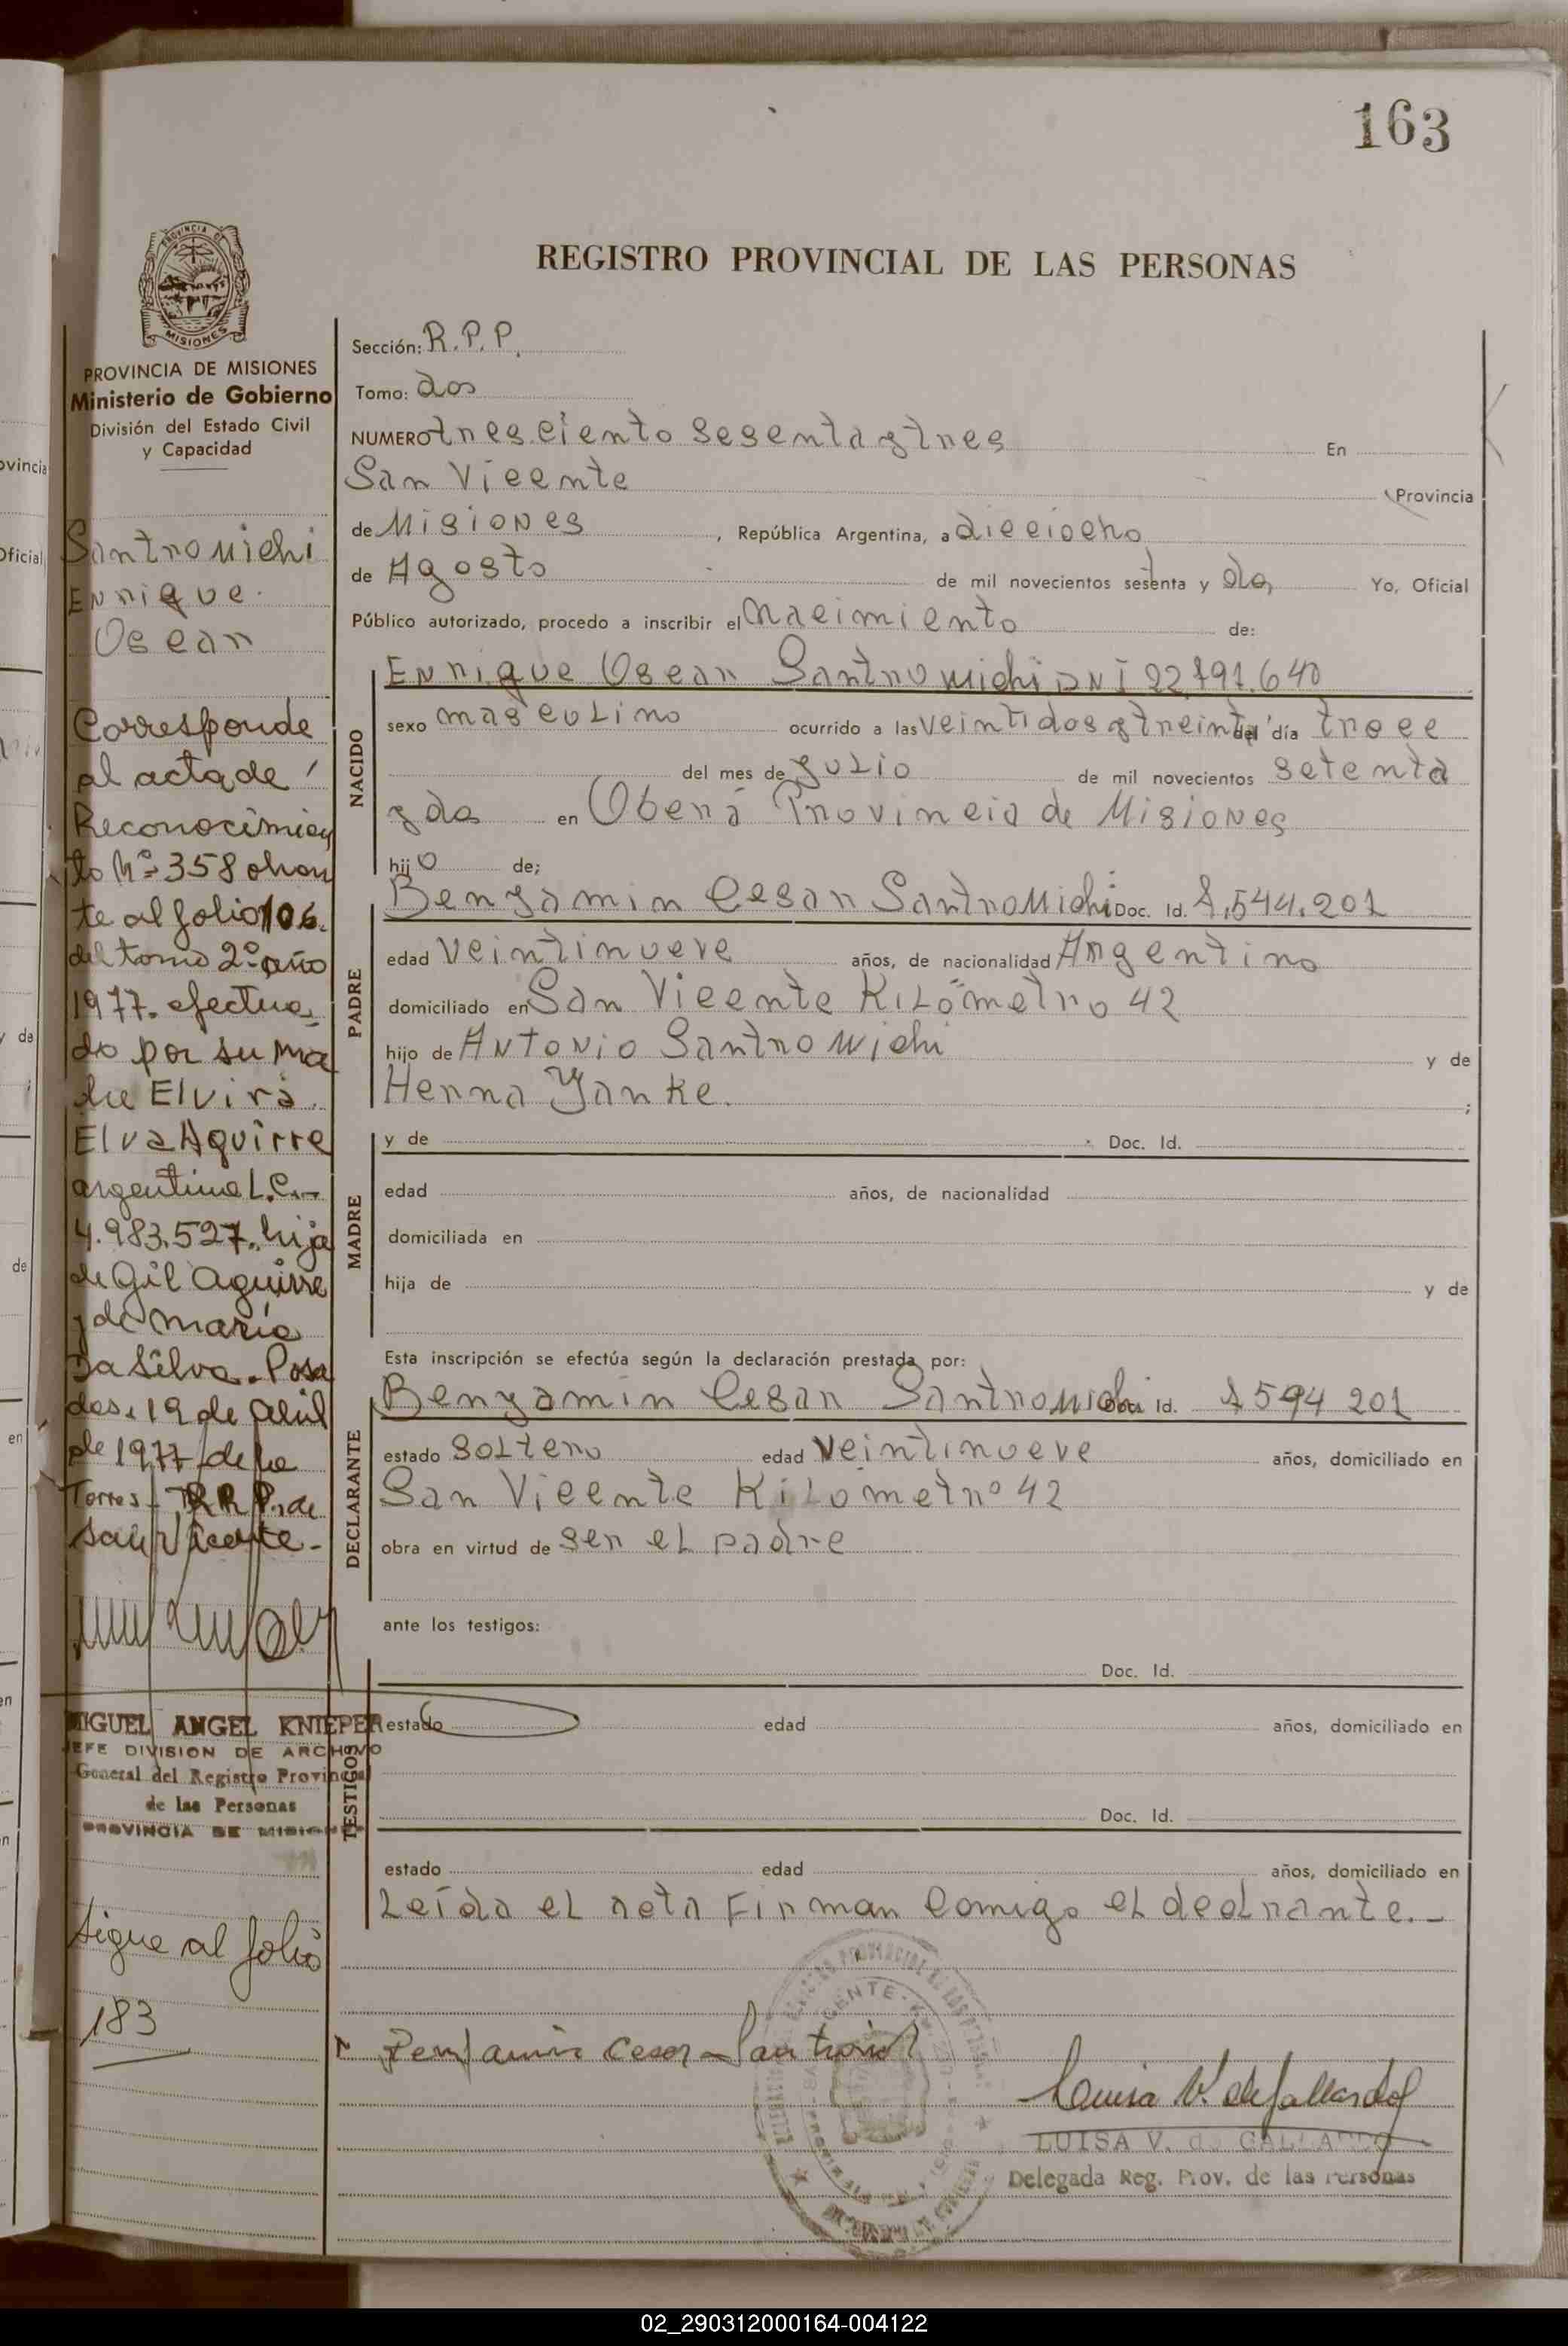 163
PROVINCIA DE
MISIONES
PROVINCIA DE MISIONES
Ministerio de Gobierno
División del Estado Civil
y Capacidad
REGISTRO PROVINCIAL DE LAS PERSONAS
Sección: R.P.P.
Tomo: dos
NUMERO tresciento sesenta y tres En
San Vicente Provincia
de Misiones, República Argentina, a dieciocho
de Agosto de mil novecientos setenta y dos Yo, Oficial
Público autorizado, procedo a inscribir el nacimiento de:
NACIDO
Enrique Oscar Santrowichi DNI 22.791.640
sexo masculino ocurrido a las veintidos y treinta del día trece
del mes de Julio de mil novecientos setenta
y dos en Oberá Provincia de Misiones
hijo de;
PADRE
Benjamin Cesar Santrowichi Doc. Id. 7.544.201
edad veintinueve años, de nacionalidad Argentino
domiciliado en San Vicente Kilómetro 42
hijo de Antonio Santrowichi y de
Herna Yanke.;
MADRE
y de Doc. Id.
edad años, de nacionalidad
domiciliada en
hija de y de
Esta inscripción se efectúa según la declaración prestada por:
DECLARANTE
Benjamin Cesar Santrowichi Doc. Id. 7594 201
estado soltero edad veintinueve años, domiciliado en
San Vicente Kilometro 42
obra en virtud de ser el padre
ante los testigos:
TESTIGOS
Doc. Id.
estado edad años, domiciliado en
Doc. Id.
estado edad años, domiciliado en
Leída el acta Firman Comigo el declrante.-
Benjamin Cesar Santrowich
Luisa V. de Gallardo
LUISA V. de GALLARDO
Delegada Reg. Prov. de las Personas
Santrowichi
Enrique
Oscar
Corresponde
al acta de
Reconocimien
to Nº 358 obran
te al folio 106.
del tomo 2º año
1977. efectua
do por su ma
dre Elvira
Elva Aguirre
argentina L.C.-
4.983.527. hija
de Gil Aguirre
y de María
Da Silva. Posa
das. 19 de abril
de 1977 de la
Torres - R.P.P. de
San Vicente-
MIGUEL ANGEL KNIEPER
JEFE DIVISION DE ARCHIVO
General del Registro Provincial
de las Personas
PROVINCIA DE MISIONES
Sigue al folio
183
02_290312000164-004122